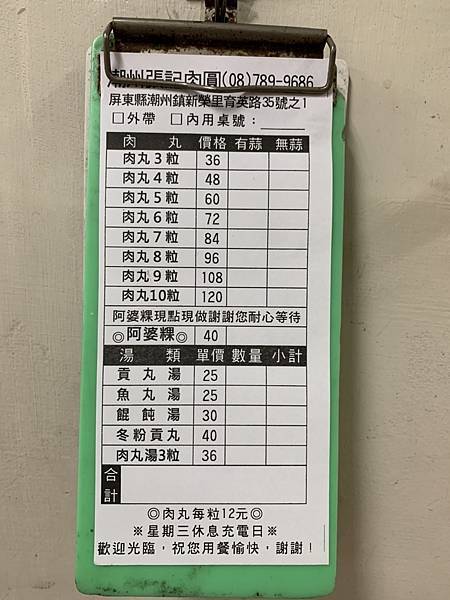 潮州張記肉圓(08)789-9686
屏東縣潮州鎮新榮里育英路35號之1
□外帶 □內用桌號：
肉丸 價格 有蒜 無蒜
肉丸3粒 36
肉丸4粒 48
肉丸5粒 60
肉丸6粒 72
肉丸7粒 84
肉丸8粒 96
肉丸9粒 108
肉丸10粒 120
阿婆粿現點現做謝謝您耐心等待
◎阿婆粿◎ 40
湯類 單價 數量 小計
貢丸湯 25
魚丸湯 25
餛飩湯 30
冬粉貢丸 40
肉丸湯3粒 36
合計
◎肉丸每粒12元◎
※星期三休息充電日※
歡迎光臨，祝您用餐愉快，謝謝！